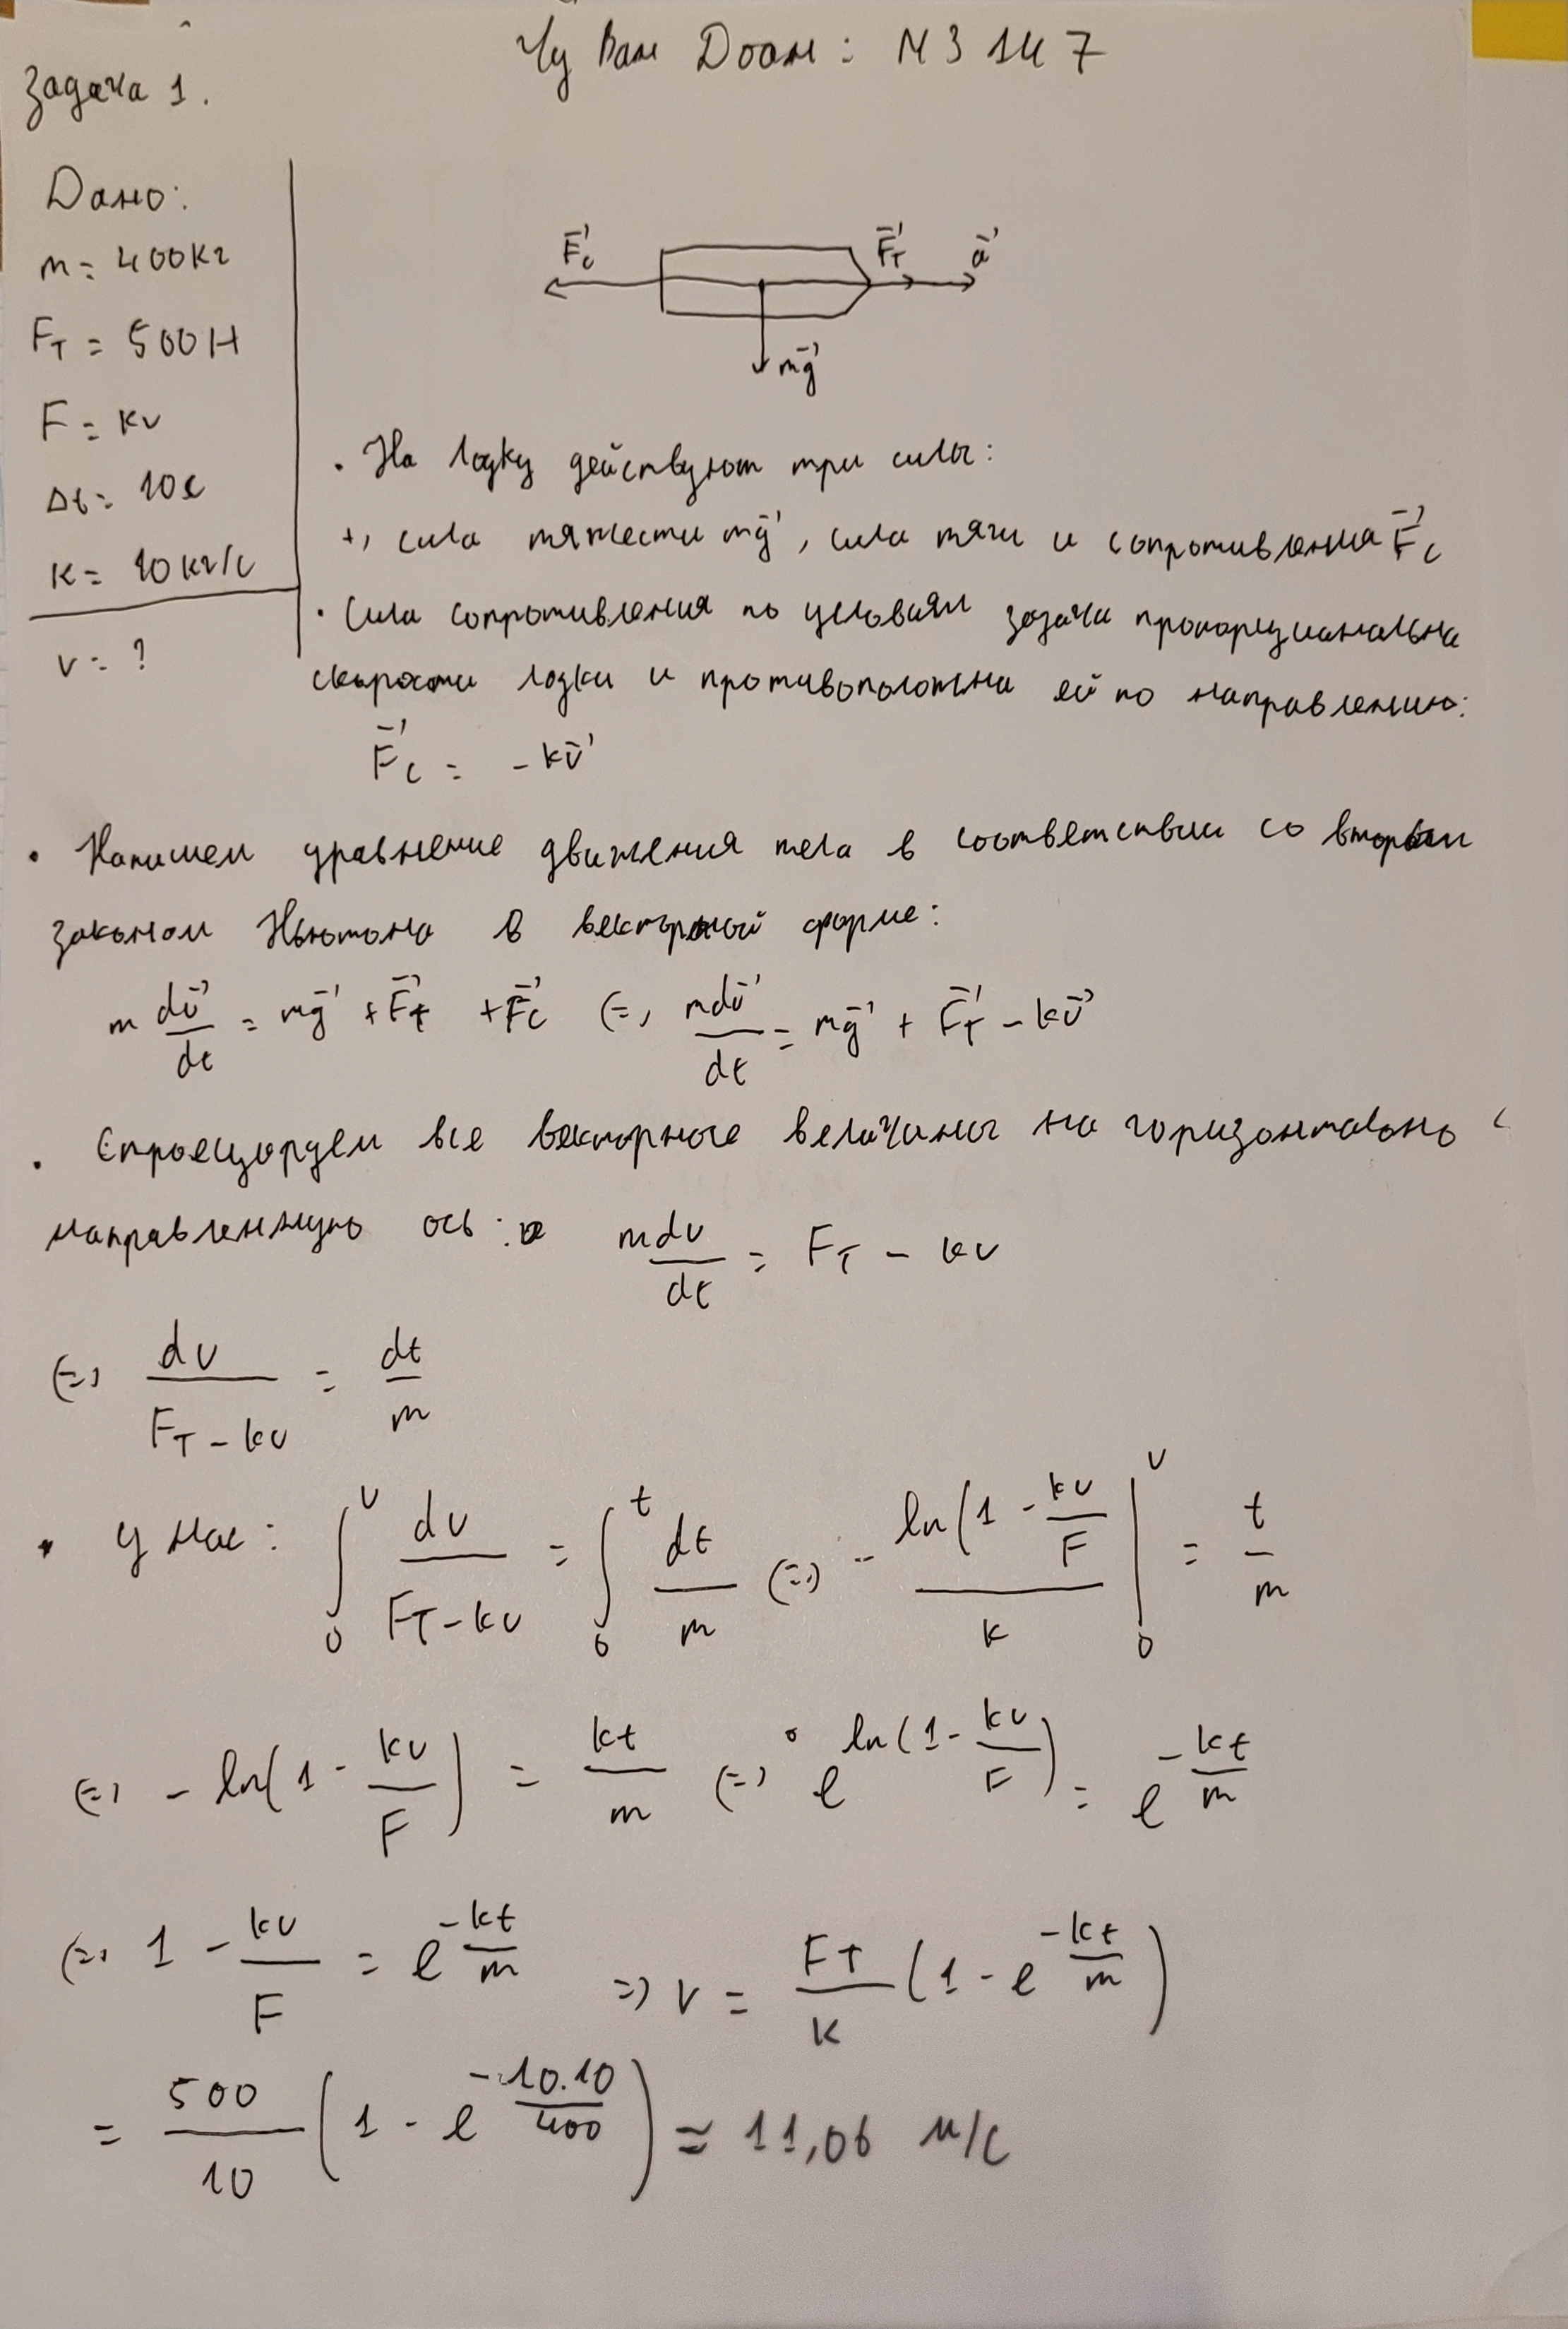 Чу Ван Доан: М3147
Задача 1.
Дано:
m = 400 кг
F_T = 500 Н
F = kv
Δt = 10с
k = 10 кг/с
v = ?
F⃗_c F⃗_T a⃗
mg⃗
· На лодку действуют три силы:
+, сила тяжести mg⃗, сила тяги и сопротивления F⃗_c
· Сила сопротивления по условиям задачи пропорциональна
скорости лодки и противоположна ей по направлению:
F⃗_c = -kv⃗
· Напишем уравнение движения тела в соответствии со вторым
законом Ньютона в векторной форме:
m dv⃗/dt = mg⃗ + F⃗_T + F⃗_c (=) mdv⃗/dt = mg⃗ + F⃗_T - kv⃗
· Спроецируем все векторные величины на горизонтально
направленную ось: mdv/dt = F_T - kv
(=) dv/(F_T - kv) = dt/m
· У нас: ∫_0^v dv/(F_T - kv) = ∫_0^t dt/m (=) - ln(1 - kv/F)/k |_0^v = t/m
(=) - ln(1 - kv/F) = kt/m (=) e^(ln(1 - kv/F)) = e^(-kt/m)
(=) 1 - kv/F = e^(-kt/m) => v = F_T/k (1 - e^(-kt/m))
= 500/10 (1 - e^(-10.10/400)) ≈ 11,06 м/с